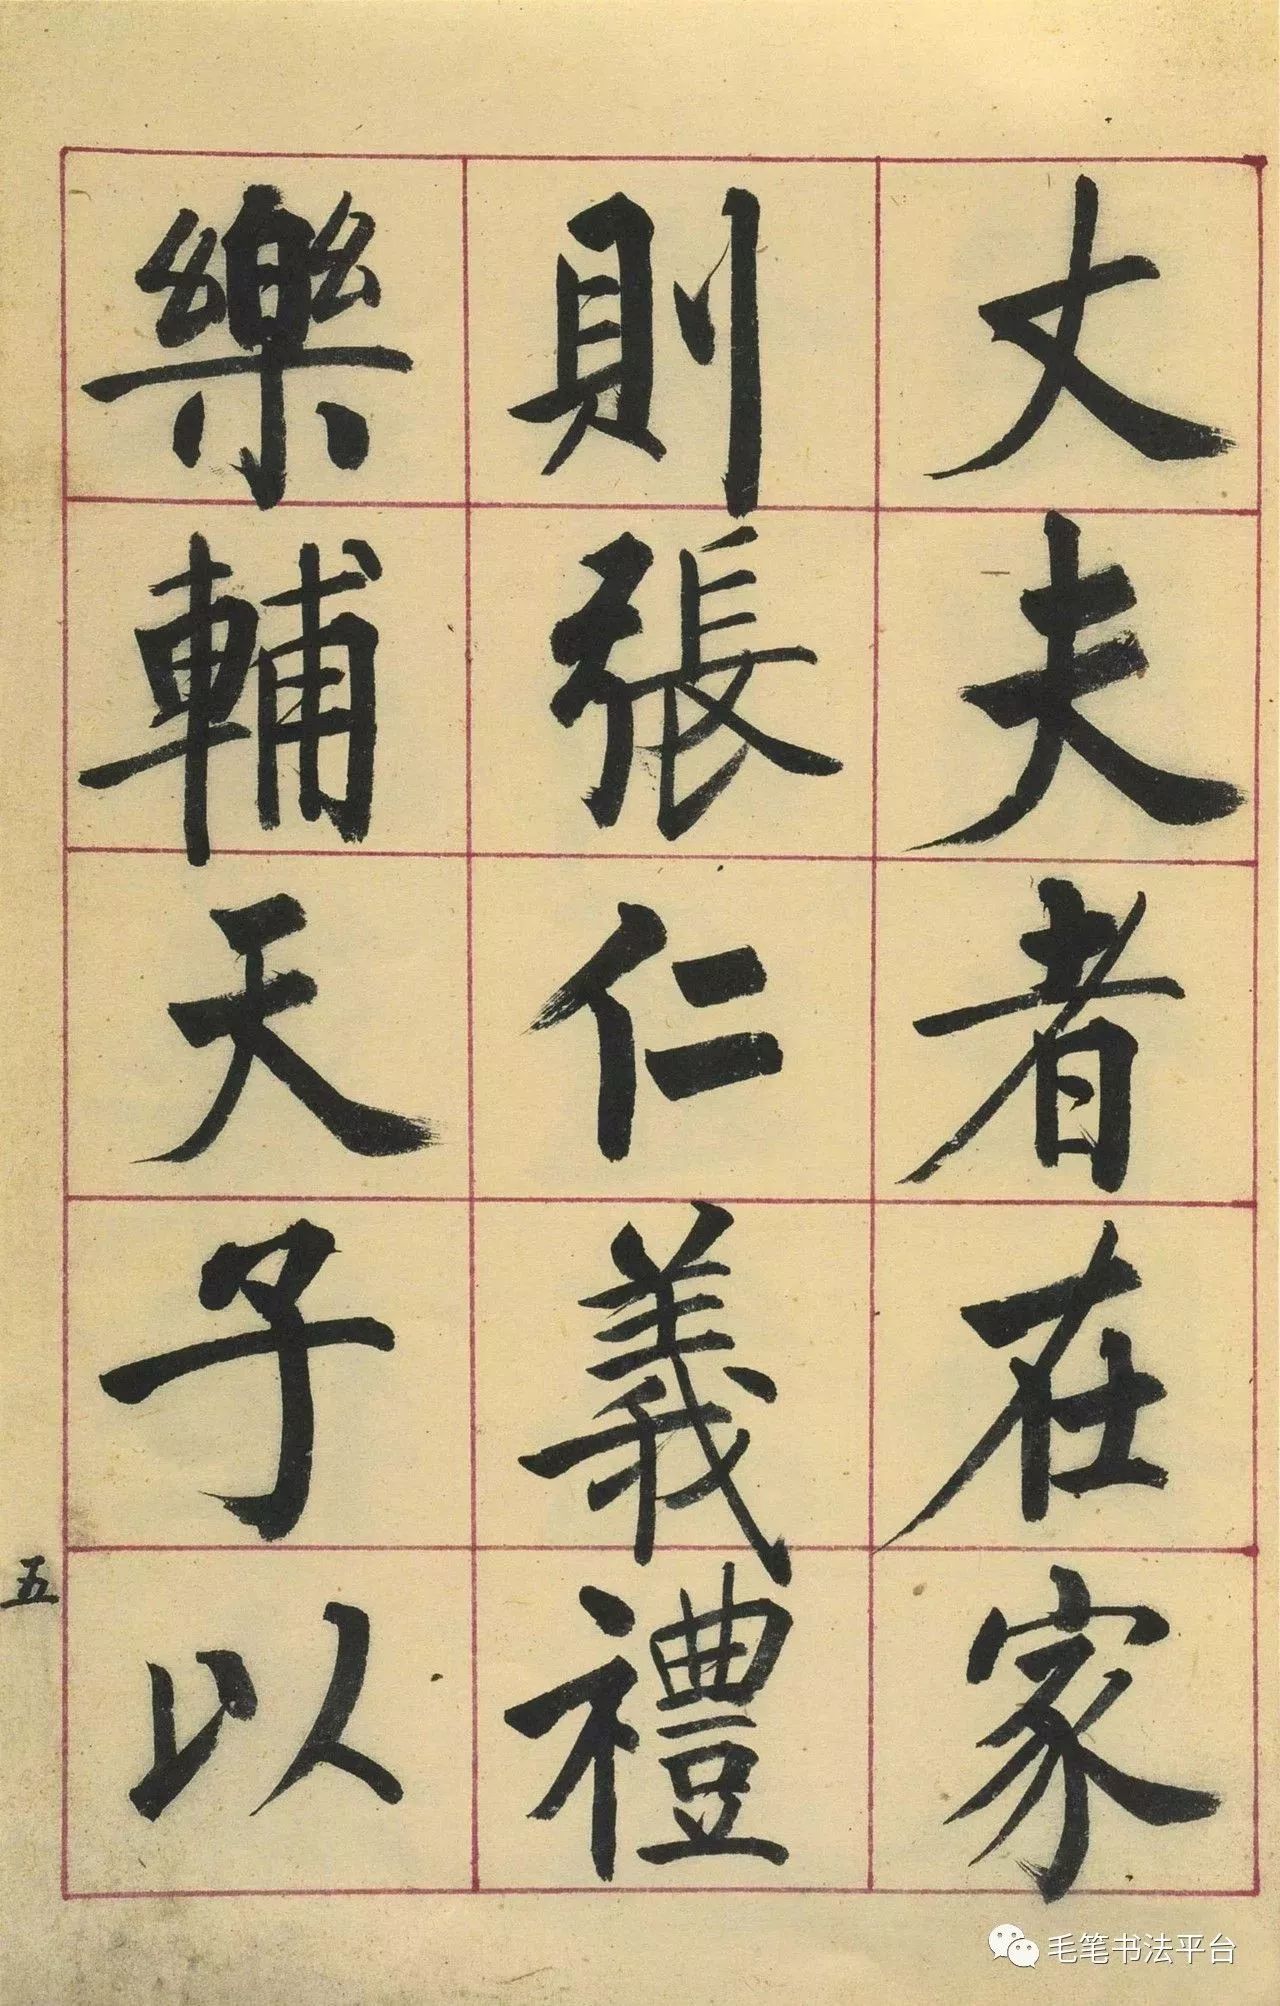 丈夫者在家
則張仁義禮
樂輔天子以
五
毛笔书法平台